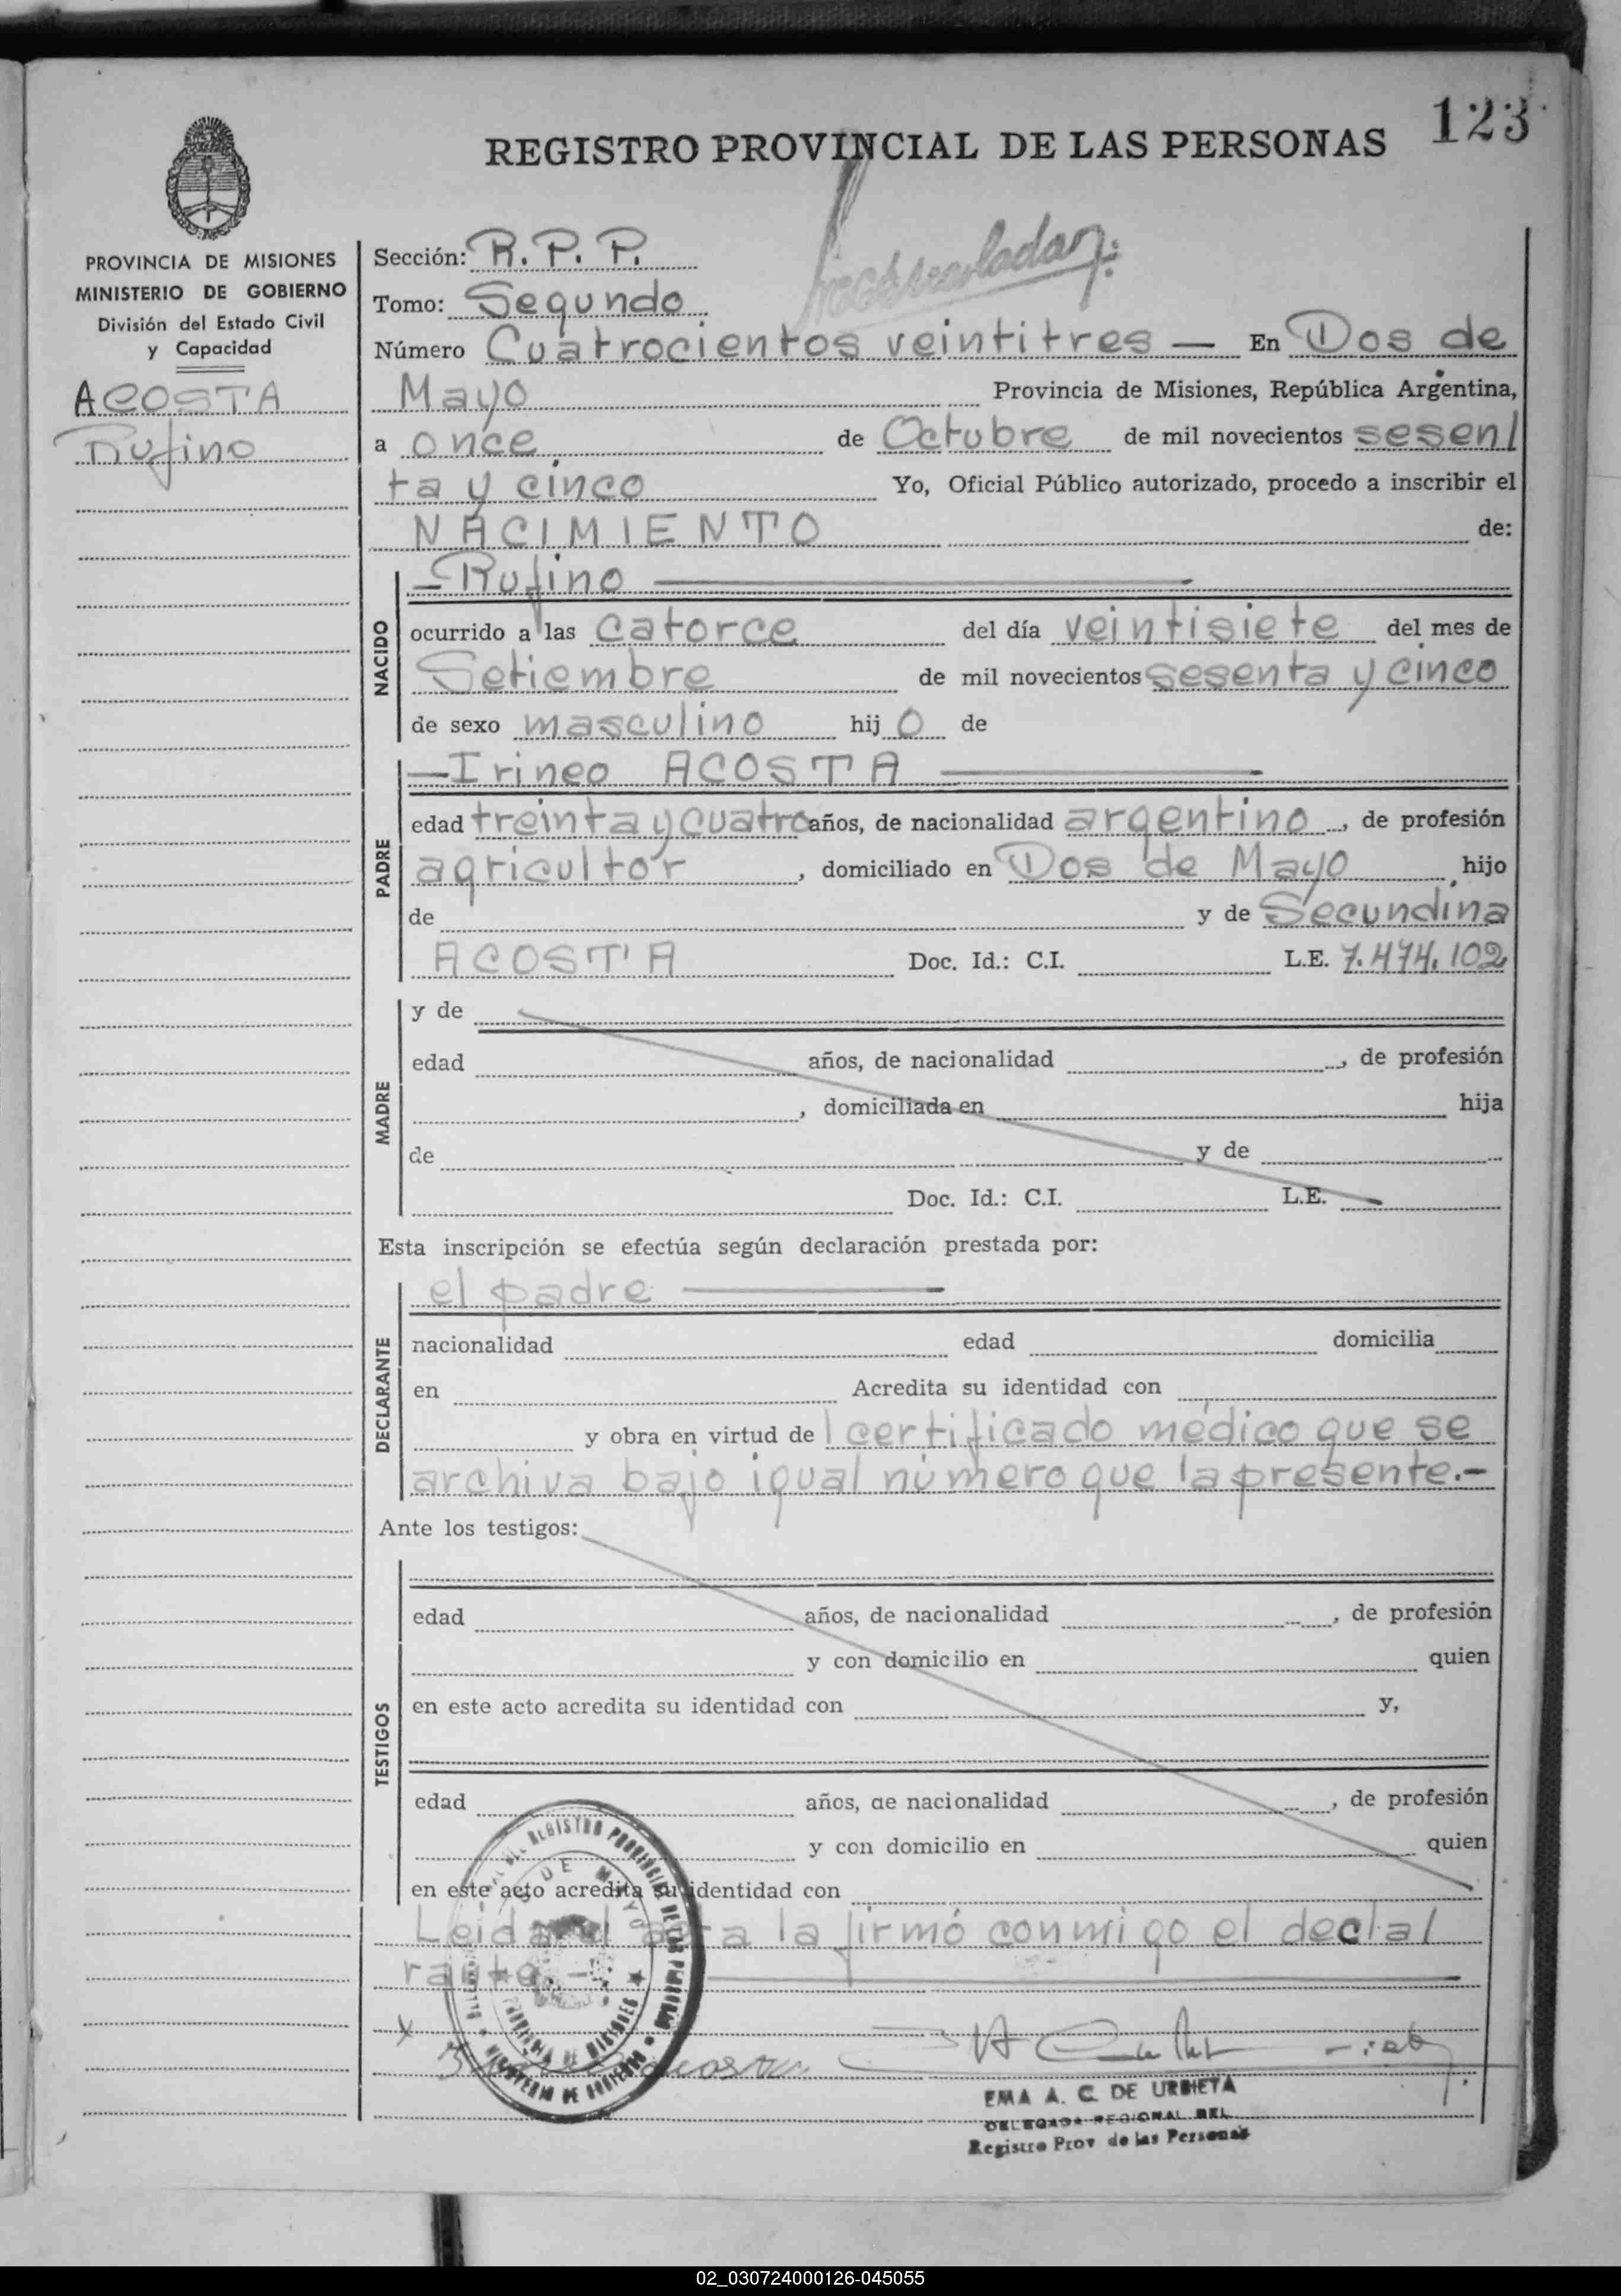 123
REGISTRO PROVINCIAL DE LAS PERSONAS
PROVINCIA DE MISIONES
MINISTERIO DE GOBIERNO
División del Estado Civil
y Capacidad
ACOSTA
Rufino
Sección: R. P. P.
Tomo: Segundo
Número Cuatrocientos veintitres — En Dos de
Mayo Provincia de Misiones, República Argentina,
a once de Octubre de mil novecientos sesen/
ta y cinco Yo, Oficial Público autorizado, procedo a inscribir el
NACIMIENTO de:
NACIDO
— Rufino —
ocurrido a las catorce del día veintisiete del mes de
Setiembre de mil novecientos sesenta y cinco
de sexo masculino hij o de
PADRE
— Irineo ACOSTA —
edad treinta y cuatro años, de nacionalidad argentino, de profesión
agricultor, domiciliado en Dos de Mayo hijo
de y de Secundina
ACOSTA Doc. Id.: C.I. L.E. 7.474.102
MADRE
y de
edad años, de nacionalidad , de profesión
, domiciliada en hija
de y de
Doc. Id.: C.I. L.E.
Esta inscripción se efectúa según declaración prestada por:
DECLARANTE
el padre —
nacionalidad edad domicilia
en Acredita su identidad con
y obra en virtud de l certificado médico que se
archiva bajo igual número que la presente.-
Ante los testigos:
TESTIGOS
edad años, de nacionalidad , de profesión
y con domicilio en quien
en este acto acredita su identidad con y,
edad años, de nacionalidad , de profesión
y con domicilio en quien
en este acto acredita su identidad con
Leida el acta la firmó conmigo el decla/
rante.-
x
Acosta
EMA A. C. DE URBIETA
DELEGADA REGIONAL DEL
Registro Prov de las Personas
02_030724000126-045055